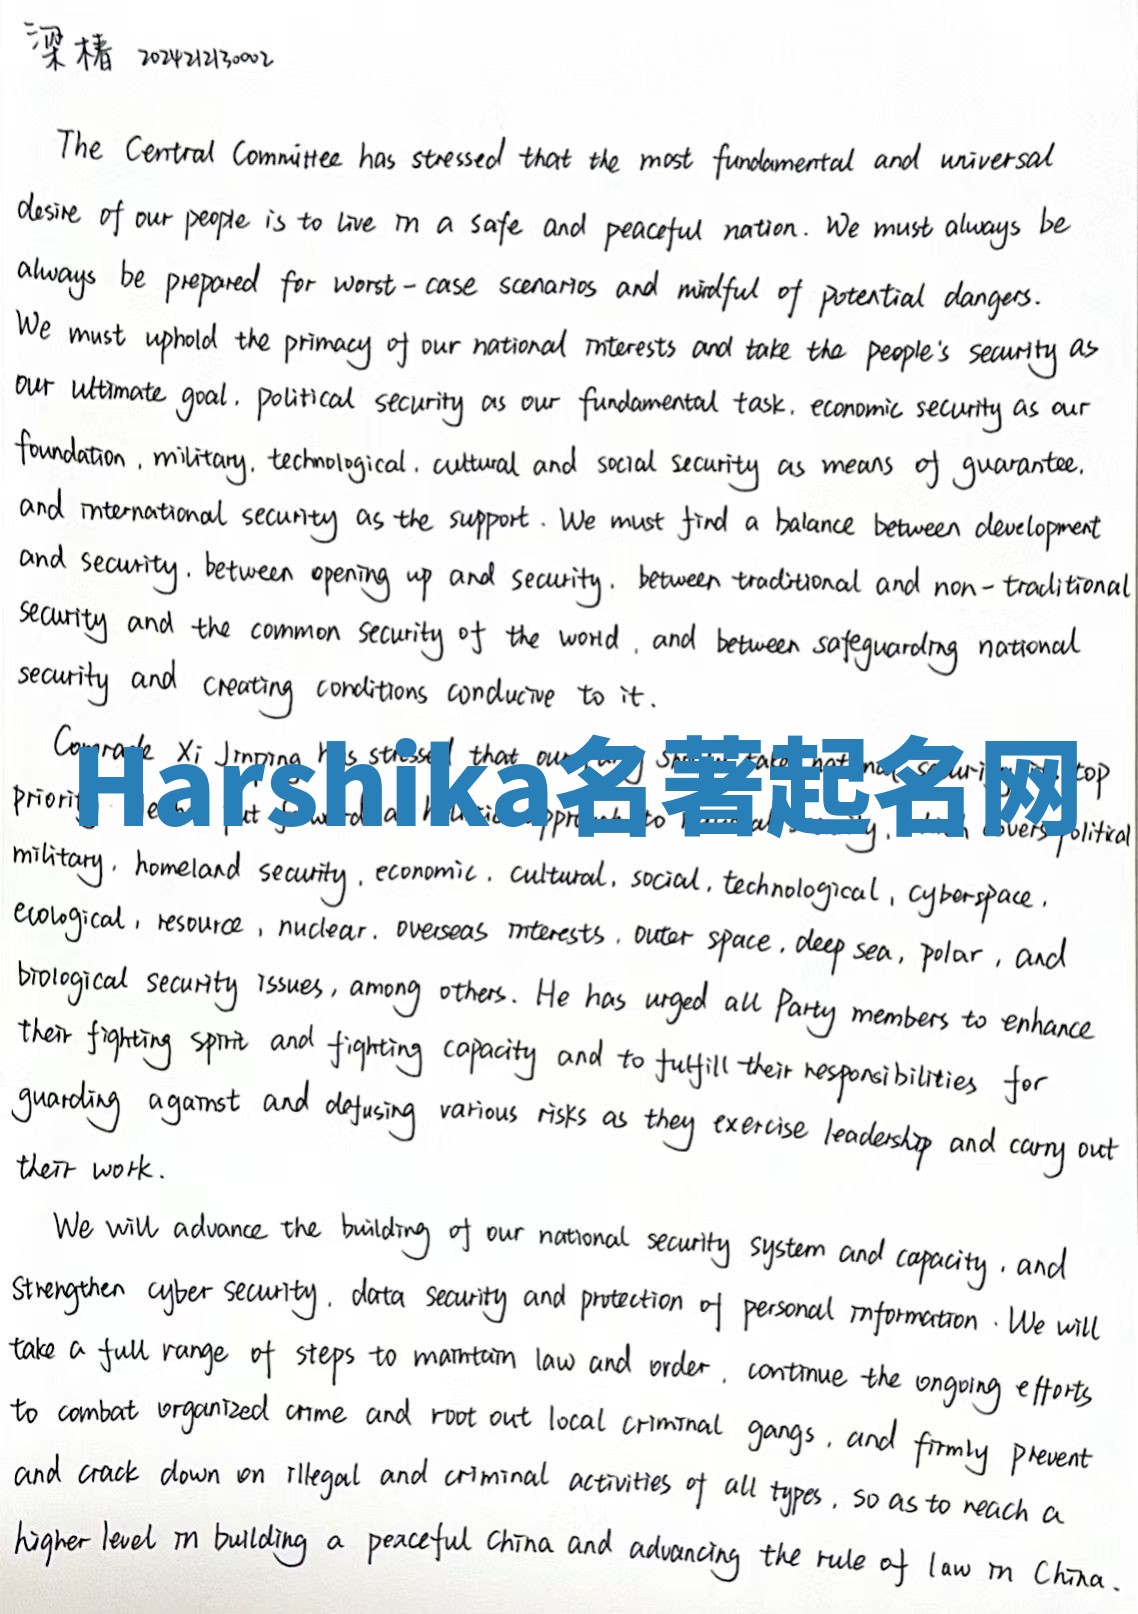 梁椿 2024212130002
The Central Committee has stressed that the most fundamental and universal
desire of our people is to live in a safe and peaceful nation. We must always be
always be prepared for worst-case scenarios and mindful of potential dangers.
We must uphold the primacy of our national interests and take the people's security as
our ultimate goal, political security as our fundamental task, economic security as our
foundation, military, technological, cultural and social security as means of guarantee,
and international security as the support. We must find a balance between development
and security, between opening up and security, between traditional and non-traditional
security and the common security of the world, and between safeguarding national
security and creating conditions conducive to it.
Comrade Xi Jinping has stressed that our take national security top
Harshika名著起名网
put forward a holistic approach to national security, which covers political
military, homeland security, economic, cultural, social, technological, cyberspace,
ecological, resource, nuclear, overseas interests, outer space, deep sea, polar, and
biological security issues, among others. He has urged all Party members to enhance
their fighting spirit and fighting capacity and to fulfill their responsibilities for
guarding against and defusing various risks as they exercise leadership and carry out
their work.
We will advance the building of our national security system and capacity, and
strengthen cyber security, data security and protection of personal information. We will
take a full range of steps to maintain law and order, continue the ongoing efforts
to combat organized crime and root out local criminal gangs, and firmly prevent
and crack down on illegal and criminal activities of all types, so as to reach a
higher level in building a peaceful China and advancing the rule of law in China.